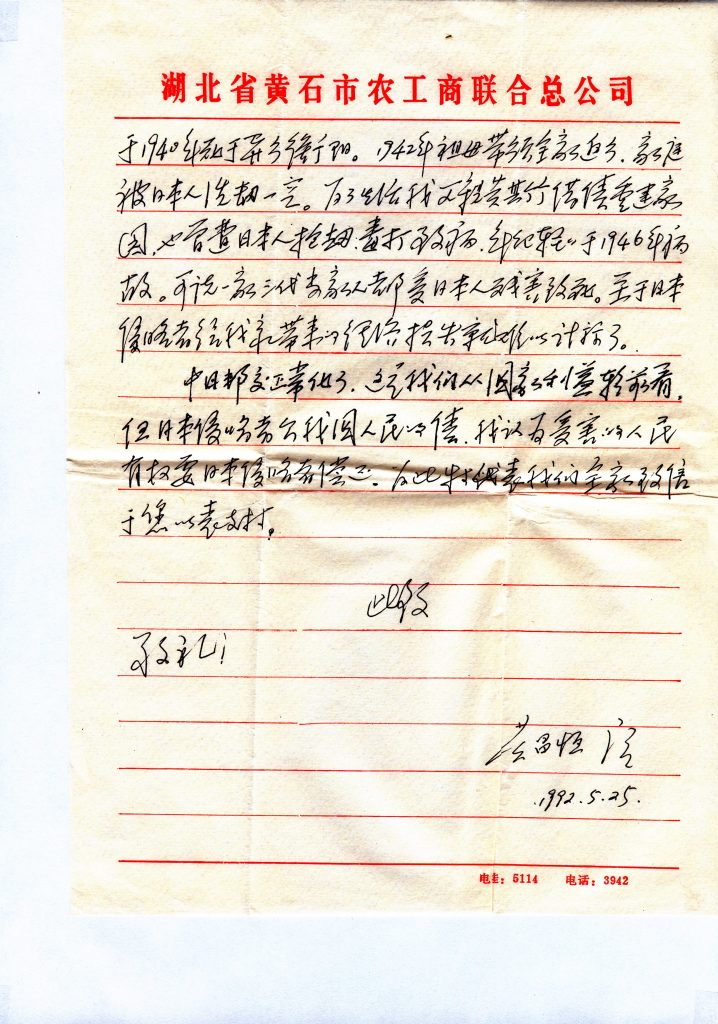 湖北省黄石市农工商联合总公司
于1940年死于异乡衡阳。1942年祖母带领全家返乡、家庭
被日本人洗劫一空。为了生活我父亲黄其行借债重建家
园,也曾遭日本人抢劫、毒打致病,年纪轻轻于1946年病
故。可说一家三代为家人都受日本人残害致死。至于日本
侵略者给我家带来的经济损失就难以计算了。
中日邦交正常化了,这是我们从国家利益朝前看,
但日本侵略者欠我国人民的债,我认为受害的人民
有权要日本侵略者偿还。为此特代表我们全家致信
于您以表支持。
此致
敬礼!
昌恒
1992.5.25.
电挂:5114 电话:3942